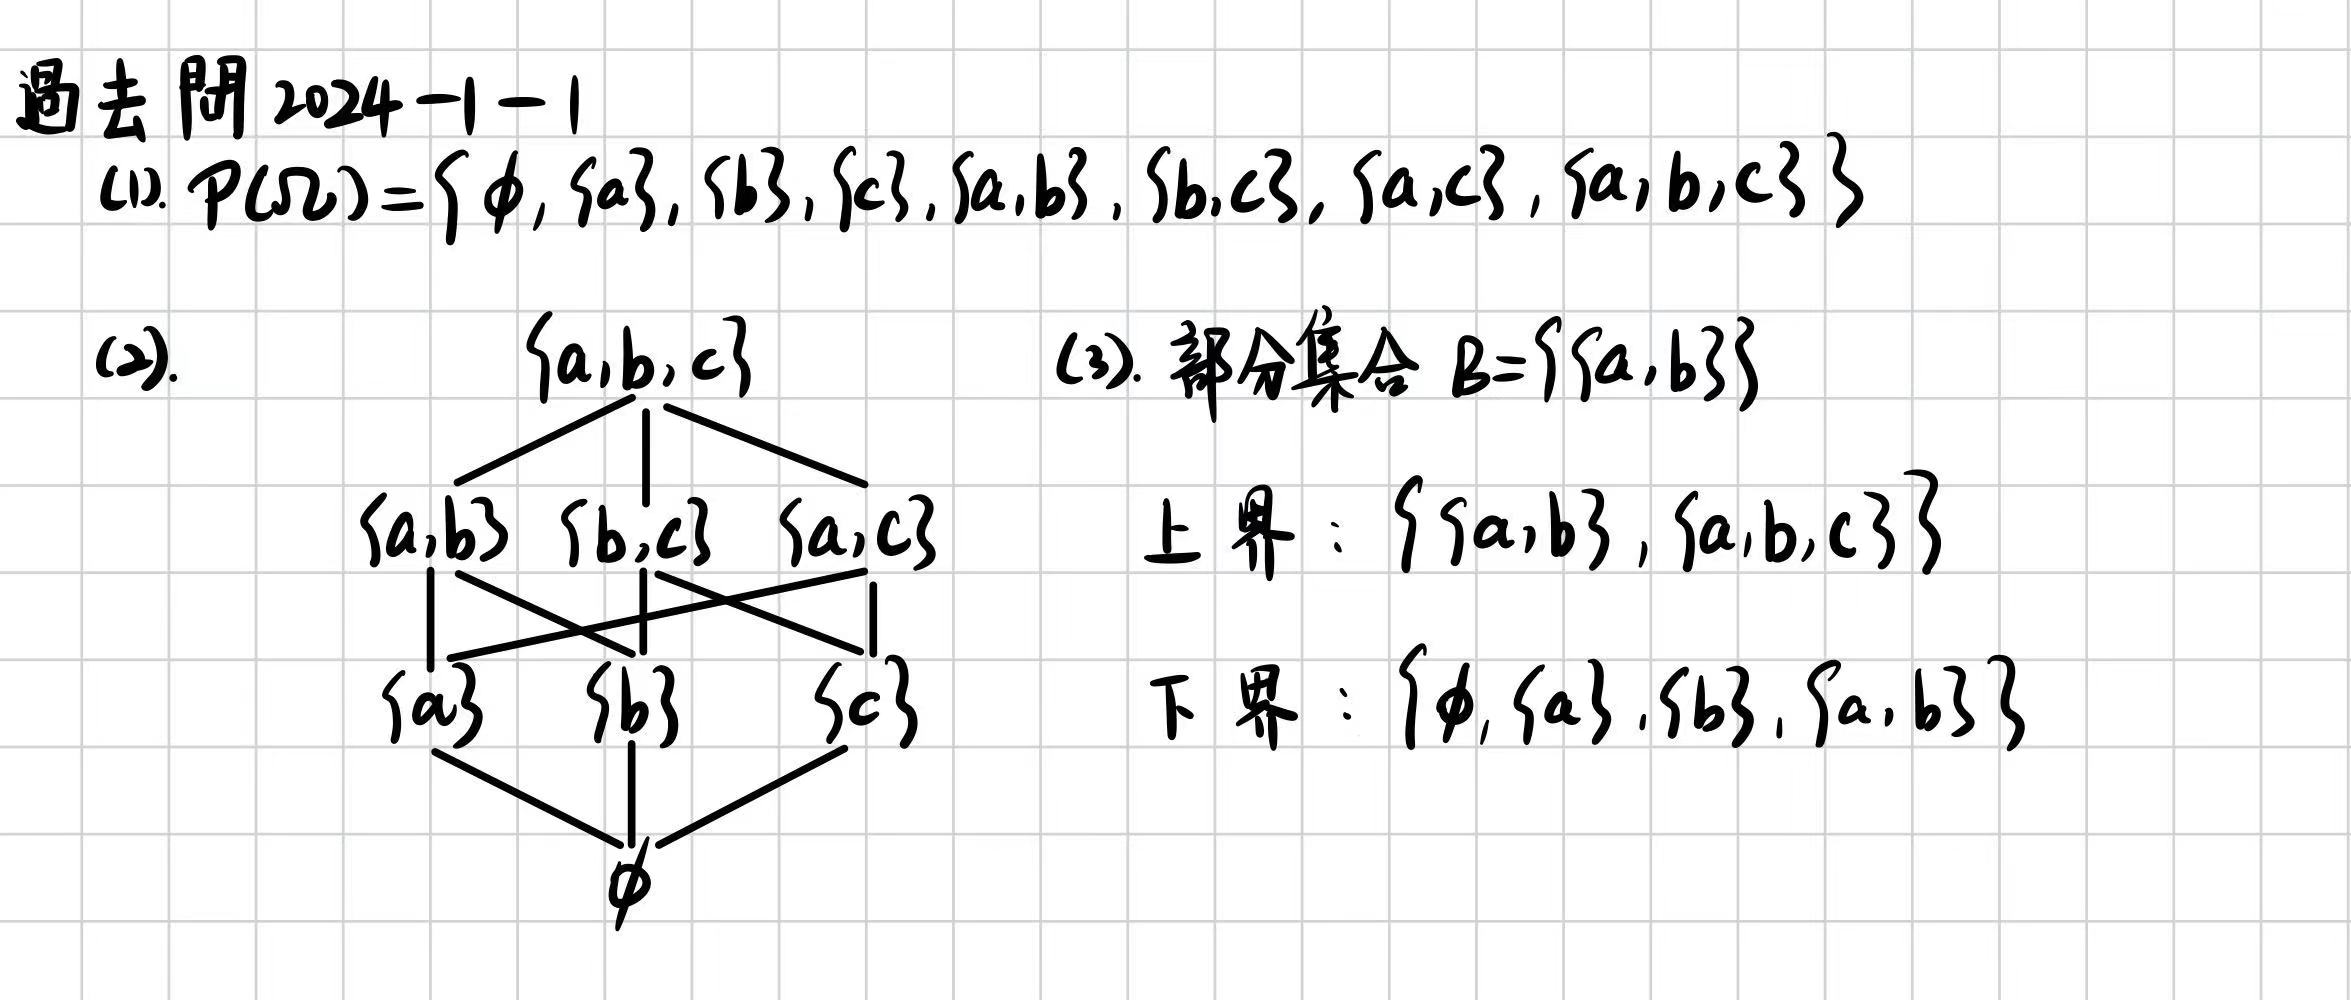 過去問 2024-1-1
(1). P(Ω)={ϕ, {a}, {b}, {c}, {a,b}, {b,c}, {a,c}, {a,b,c}}
(2).
{a,b,c}
{a,b} {b,c} {a,c}
{a} {b} {c}
ϕ
(3). 部分集合 B={{a,b}}
上界: {{a,b}, {a,b,c}}
下界: {ϕ, {a}, {b}, {a,b}}